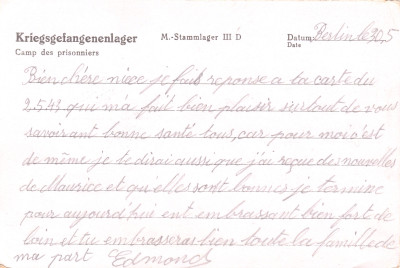 Kriegsgefangenenlager
M.-Stammlager III D
Datum: Berlin le 30,5
Camp des prisonniers
Date
Bien chère nièce je fais reponse a ta carte du
2.5.43 qui m'a fait bien plaisir surtout de vous
savoir ant bonne santé tous, car pour moi c'est
de même je te dirai aussi que j'ai reçue des nouvelles
de Maurice et qu'elles sont bonnes je termine
pour aujourd'hui ent embrassant bien fort de
loin et tu embrasseras bien toute la famille de
ma part Edmond